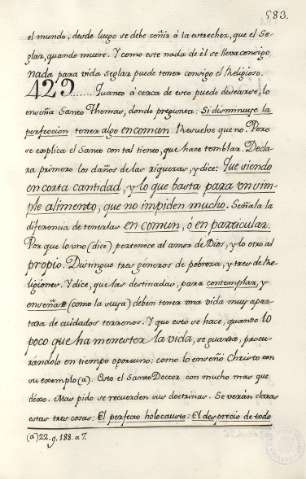 583.
el mundo, desde luego se debe ceñir á la estrechez, que el Se-
glar, quando muere. Y como este nada de él se lleva consigo,
nada para vida seglar puede tener consigo el Religioso.
422 ........ Quanto á cerca de esto puede desearse, lo
enseña Santo Thomas, donde pregunta: Si disminuye la
perfeccion tener algo en comun. Resuelve que no. Pero
se explica el Santo con tal tiento, que hace temblar. Decla-
ra primero los daños de las riquezas, y dice: Que siendo
en corta cantidad, y lo que basta para un sim-
ple alimento, que no impiden mucho. Señala la
diferencia de tenerlas en comun, ó en particular.
Por que lo uno (dice) pertenece al amor de Dios, y lo otro al
propio. Distingue tres generos de pobreza, y tres de Re-
ligiones. Y dice, que las destinadas, para contemplar, y
enseñar (como la suya) deben tener una vida muy apar-
tada de cuidados terrenos. Y que esto se hace, quando lo
poco que ha menester la vida, se guarda, procu-
randolo en tiempo oportuno: como lo enseñó Christo con
su exemplo (a). Esto el Santo Doctor con mucho mas que
dexo. Mas pido se recuerden sus doctrinas. Se verán claras
estas tres cosas: El perfecto holocausto: El desprecio de todo
(a) 22. q. 188. a 7.